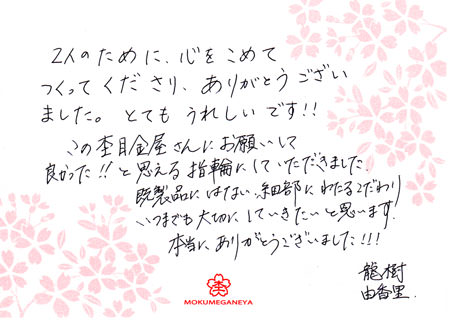 2人のために、心をこめて
つくってくださり、ありがとうござい
ました。とてもうれしいです!!
この杢目金屋さんにお願いして
良かった!!と思える指輪にしていただきました.
既製品にはない、細部にわたるこだわり
いつまでも大切にしていきたいと思います.
本当にありがとうございました!!!
龍樹
由香里.
杢
MOKUMEGANEYA